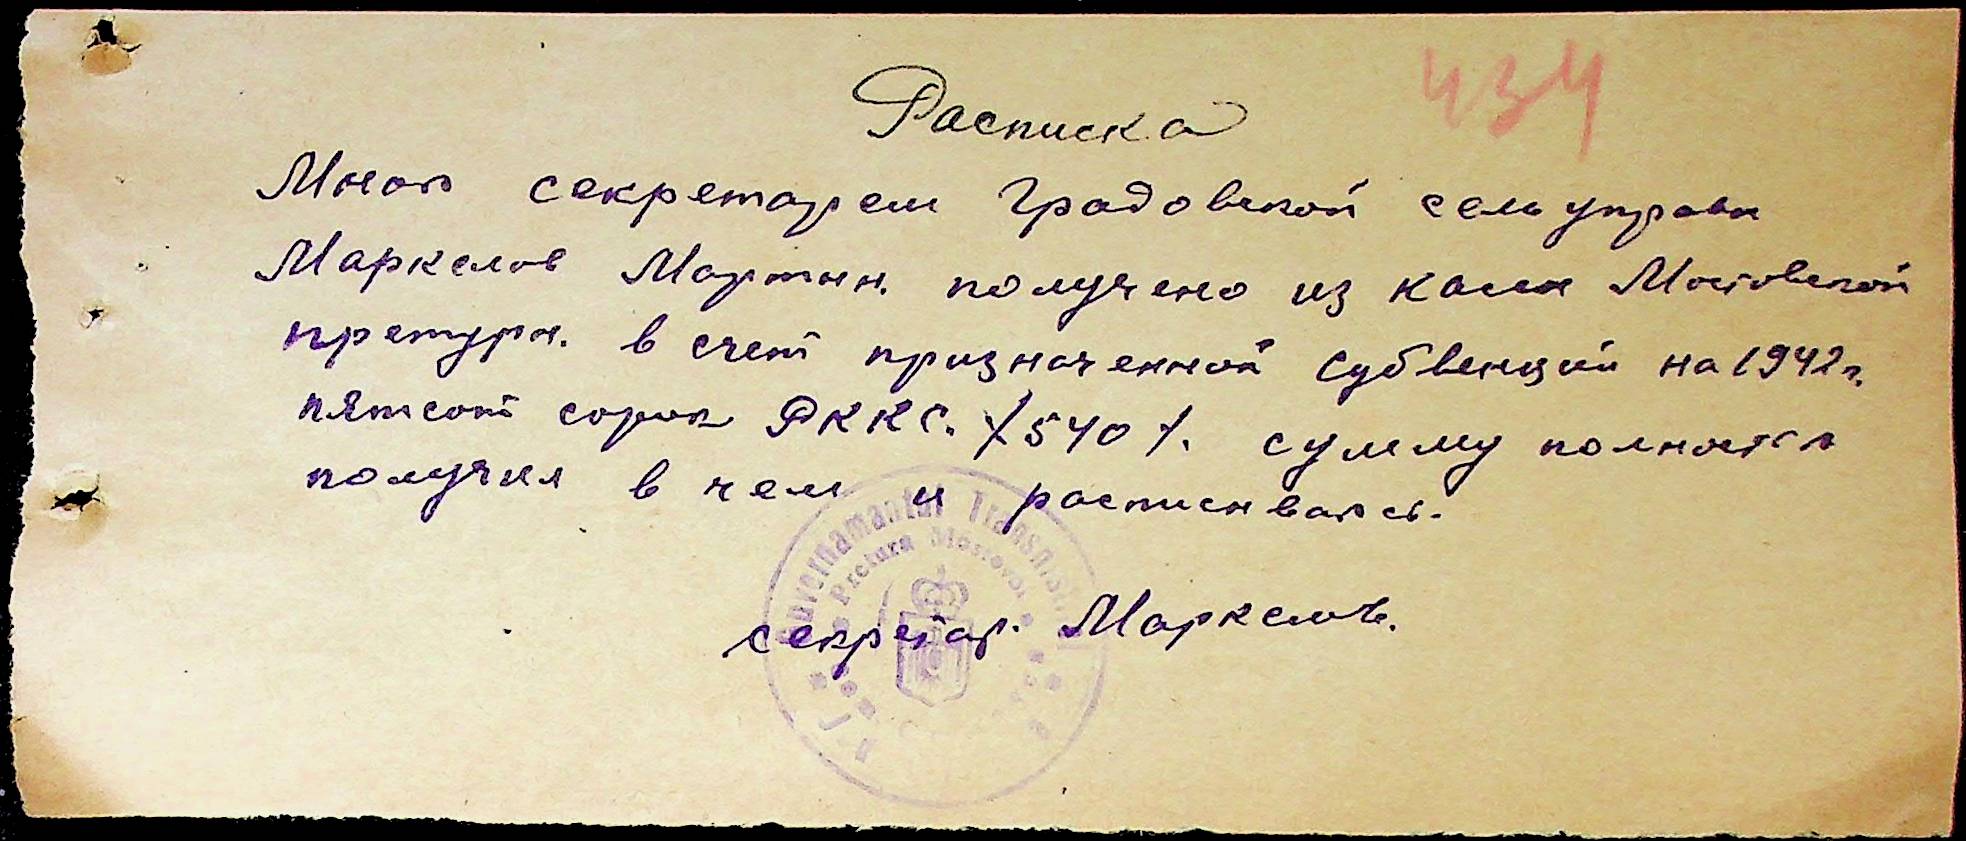 434
Расписка
Мною секретарем Градовской сельуправы
Маркелов Мартын. получено из кассы Мостовской
претуры. в счет призначенной субвенций на 1942 г.
пятсот сорок РККС. /540/. сумму полностью
получил в чем и расписываюсь.
Guvernamantul Transnistri
Pretura Mostovoi
секретар. Маркелов.